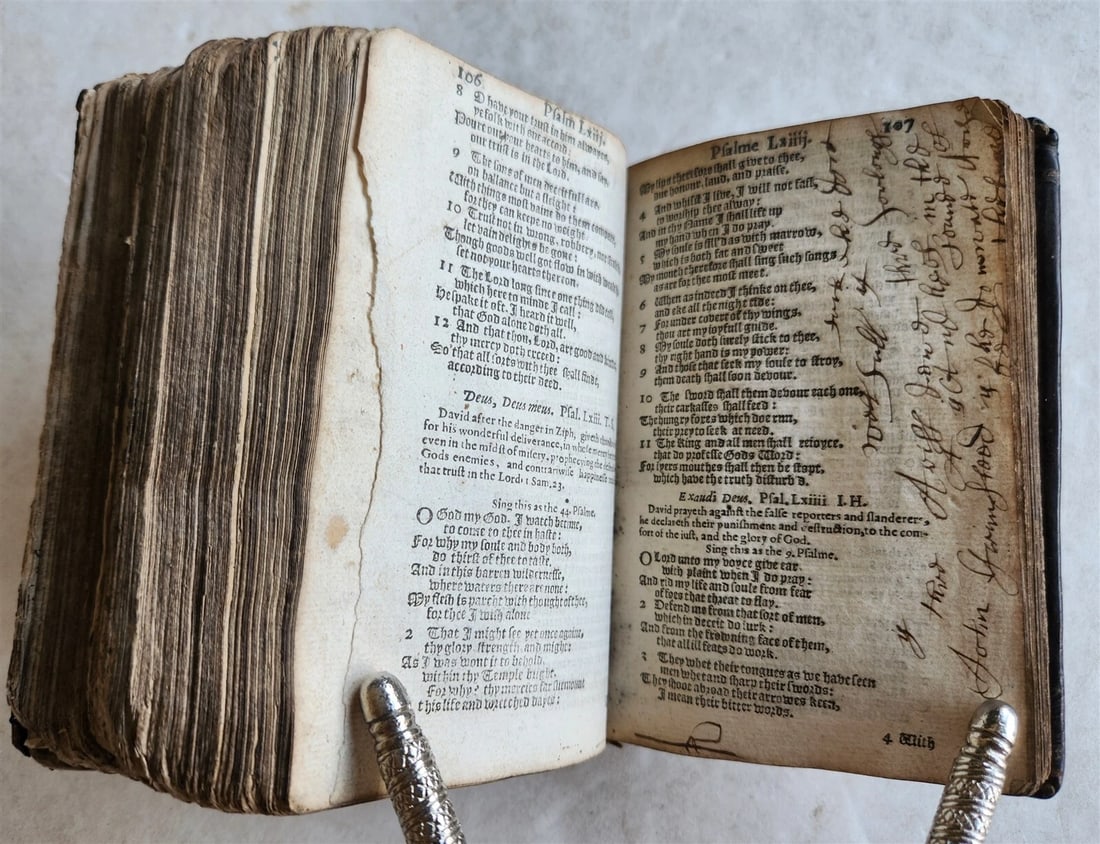 106
Psalm Lxiij.
8 O have your trust in him alwayes,
ye folk with one accord:
Poure out your hearts to him, and say,
our trust is in the Lord.
9 The sons of men deceitfull are,
on ballance but a sleight:
With things most vain do them compare,
for they can keepe no weight.
10 Trust not in wrong, robbery, nor stealth
let vain delights be gone:
Though goods well got flow in with wealth,
set not your hearts thereon.
11 The Lord long since one thing did tell,
which here to minde I call:
He spake it oft, I heard it well,
that God alone doth all.
12 And that thou, Lord, art good and kinde
thy mercy doth exceed:
So that all sorts with thee shall finde,
according to their deed.
Deus, Deus meus. Psal. Lxiii. T. S.
David after the danger in Ziph, giveth thanks
for his wonderful deliverance, in whose mercy he
even in the midst of misery, prophecying the
Gods enemies, and contrariwise happinesse
that trust in the Lord, 1 Sam, 23.
Sing this as the 44. Psalme.
O God my God, I watch betime,
to come to thee in haste:
For why my soule and body both,
do thirst of thee to taste.
And in this barren wildernesse,
where waters there are none:
My flesh is parcht with thought of thee,
for thee I wish alone
2 That I might see yet once againe,
thy glory, strength and might:
As I was wont it to behold,
within thy Temple bright.
For why? thy mercies far surmount
this life and wretched dayes:
Psalme Lxiiij.
107
My lips therefore shall give to thee,
due honour, laud, and praise.
4 And whilst I live, I will not fail,
to worship thee alway:
And in thy Name I shall lift up
my hand when I do pray.
5 My soule is fil'd as with marrow,
which is both fat and sweet
My mouth therefore shall sing such songs
as are for thee most meet.
6 When as indeed I thinke on thee,
and eke all the night tide:
7 For under covert of thy wings,
thou art my joyfull guide.
8 My soule doth surely stick to thee,
thy right hand is my power:
9 And those that seek my soule to stroy,
them death shall soon devour.
10 The sword shall them devour each one,
their carkasses shall feed:
The hungry foxes which doe run,
their prey to seek at need.
11 The King and all men shall rejoyce.
that do professe Gods Word:
For lyers mouthes shall then be stopt,
which have the truth disturb'd.
Exaudi Deus. Psal. Lxiiii I. H.
David prayeth against the false reporters and slanderers,
he declareth their punishment and destruction, to the com-
fort of the iust, and the glory of God.
Sing this as the 9. Psalme.
O Lord unto my voyce give ear.
with plaint when I do pray:
And rid my life and soule from fear
of foes that threat to slay.
2 Defend me from that sort of men,
which in deceit do lurk:
And from the frowning face of them,
that all ill feats do work.
3 They whet their tongues as we have seen
men whet and sharp their swords:
They shoot abroad their arrowes keen,
I mean their bitter words.
4 With
John